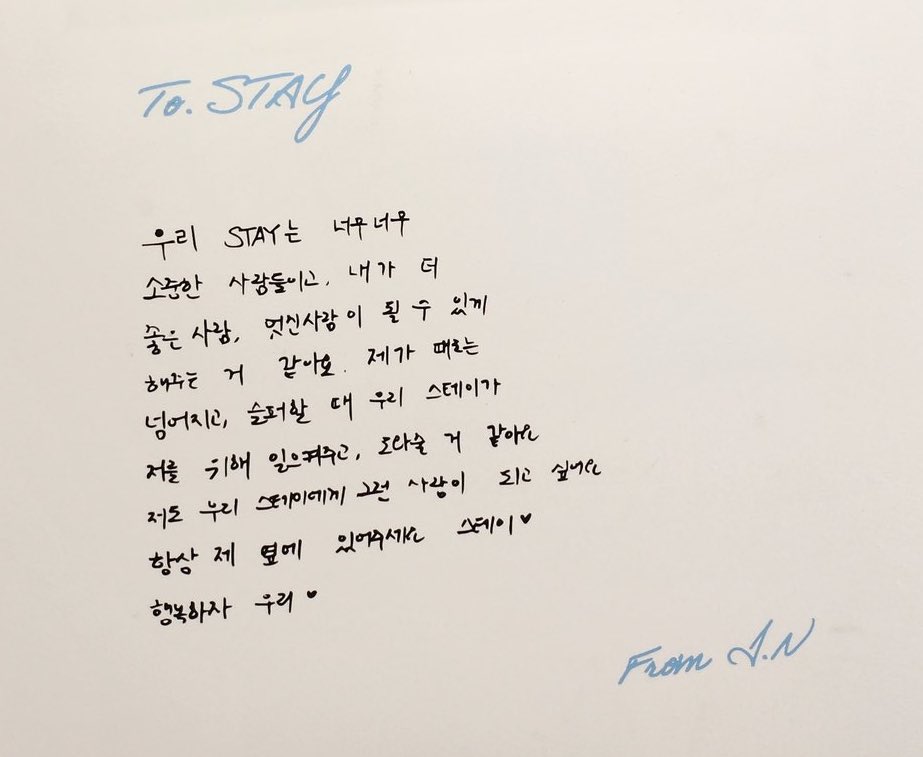 To. STAY
우리 STAY는 너무너무
소중한 사람들이고, 내가 더
좋은 사람, 멋신사람이 될 수 있게
해주는 거 같아요. 제가 때로는
넘어지고, 슬퍼할 때 우리 스테이가
저를 위해 일으켜주고, 도와줄 거 같아요
저도 우리 스테이에게 그런 사람이 되고 싶어요
항상 제 옆에 있어주세요 스테이♥
행복하자 우리♥
From I.N